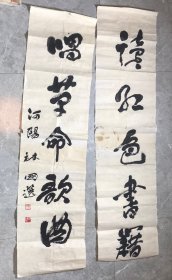 读红色書籍
唱革命歌曲
河陽
林国選